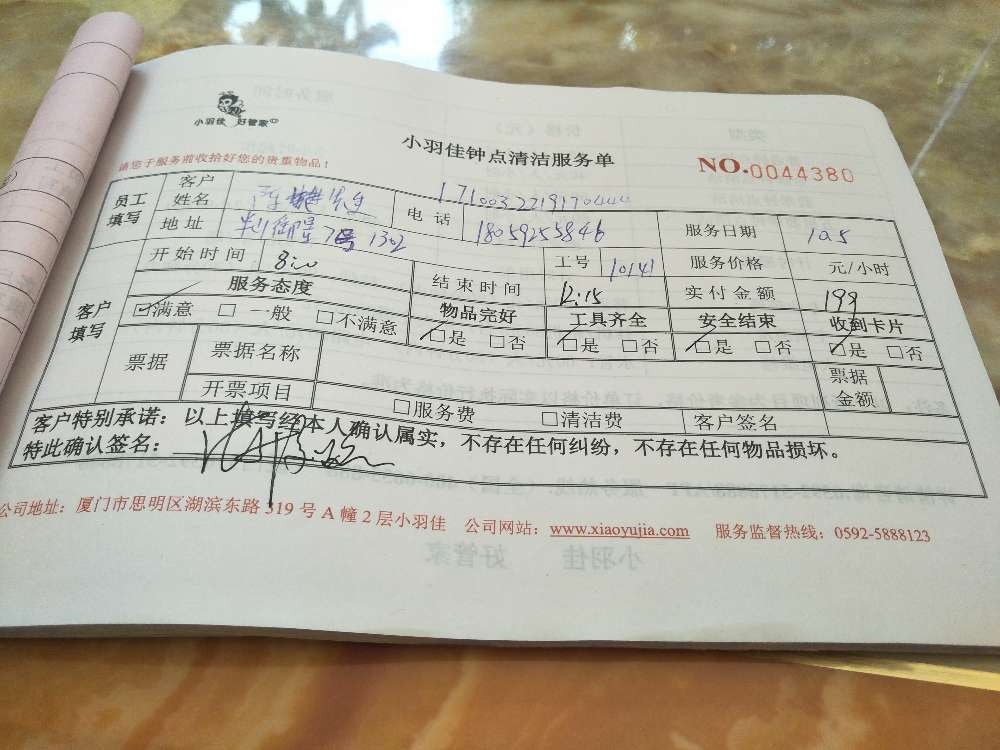 小羽佳 好管家
小羽佳钟点清洁服务单
请您于服务前收拾好您的贵重物品！
NO.0044380
员工填写 客户姓名 电话 171003221917044 服务日期 10.5
地址 7号 1302 18059255846
开始时间 8:00 工号 10141 服务价格 元/小时
服务态度 结束时间 12:15 实付金额 199
客户填写 物品完好 工具齐全 安全结束 收到卡片
☑满意 □一般 □不满意 ☑是 □否 ☑是 □否 ☑是 □否 ☑是 □否
票据 票据名称 票据金额
开票项目 □服务费 □清洁费 客户签名
客户特别承诺：以上填写经本人确认属实，不存在任何纠纷，不存在任何物品损坏。
特此确认签名：
公司地址：厦门市思明区湖滨东路319号A幢2层小羽佳 公司网站：www.xiaoyujia.com 服务监督热线：0592-5888123